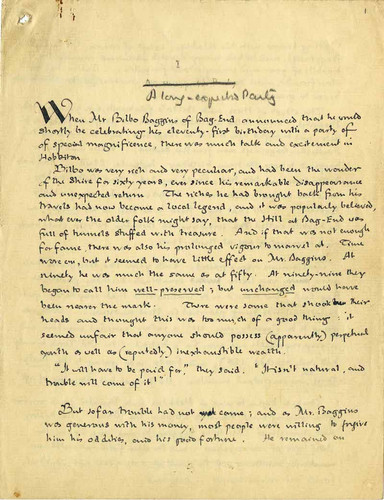 1
I
A long-expected Party
When Mr Bilbo Baggins of Bag-End announced that he would
shortly be celebrating his eleventy-first birthday with a party of
of special magnificence, there was much talk and excitement in
Hobbiton.
Bilbo was very rich and very peculiar, and had been the wonder
of the Shire for sixty years, ever since his remarkable disappearance
and unexpected return. The riches he had brought back from his
travels had now become a local legend, and it was popularly believed,
whatever the older folk might say, that the Hill at Bag-End was
full of tunnels stuffed with treasure. And if that was not enough
for fame, there was also his prolonged vigour to marvel at. Time
wore on, but it seemed to have little effect on Mr. Baggins. At
ninety he was much the same as at fifty. At ninety-nine they
began to call him well-preserved; but unchanged would have
been nearer the mark. There were some that shook their
heads and thought this was too much of a good thing: it
seemed unfair that anyone should possess (apparently) perpetual
youth as well as (reputedly) inexhaustible wealth.
"It will have to be paid for," they said. "It isn't natural, and
trouble will come of it!"
But so far trouble had not come; and as Mr. Baggins
was generous with his money, most people were willing to forgive
him his oddities, and his good fortune. He remained on